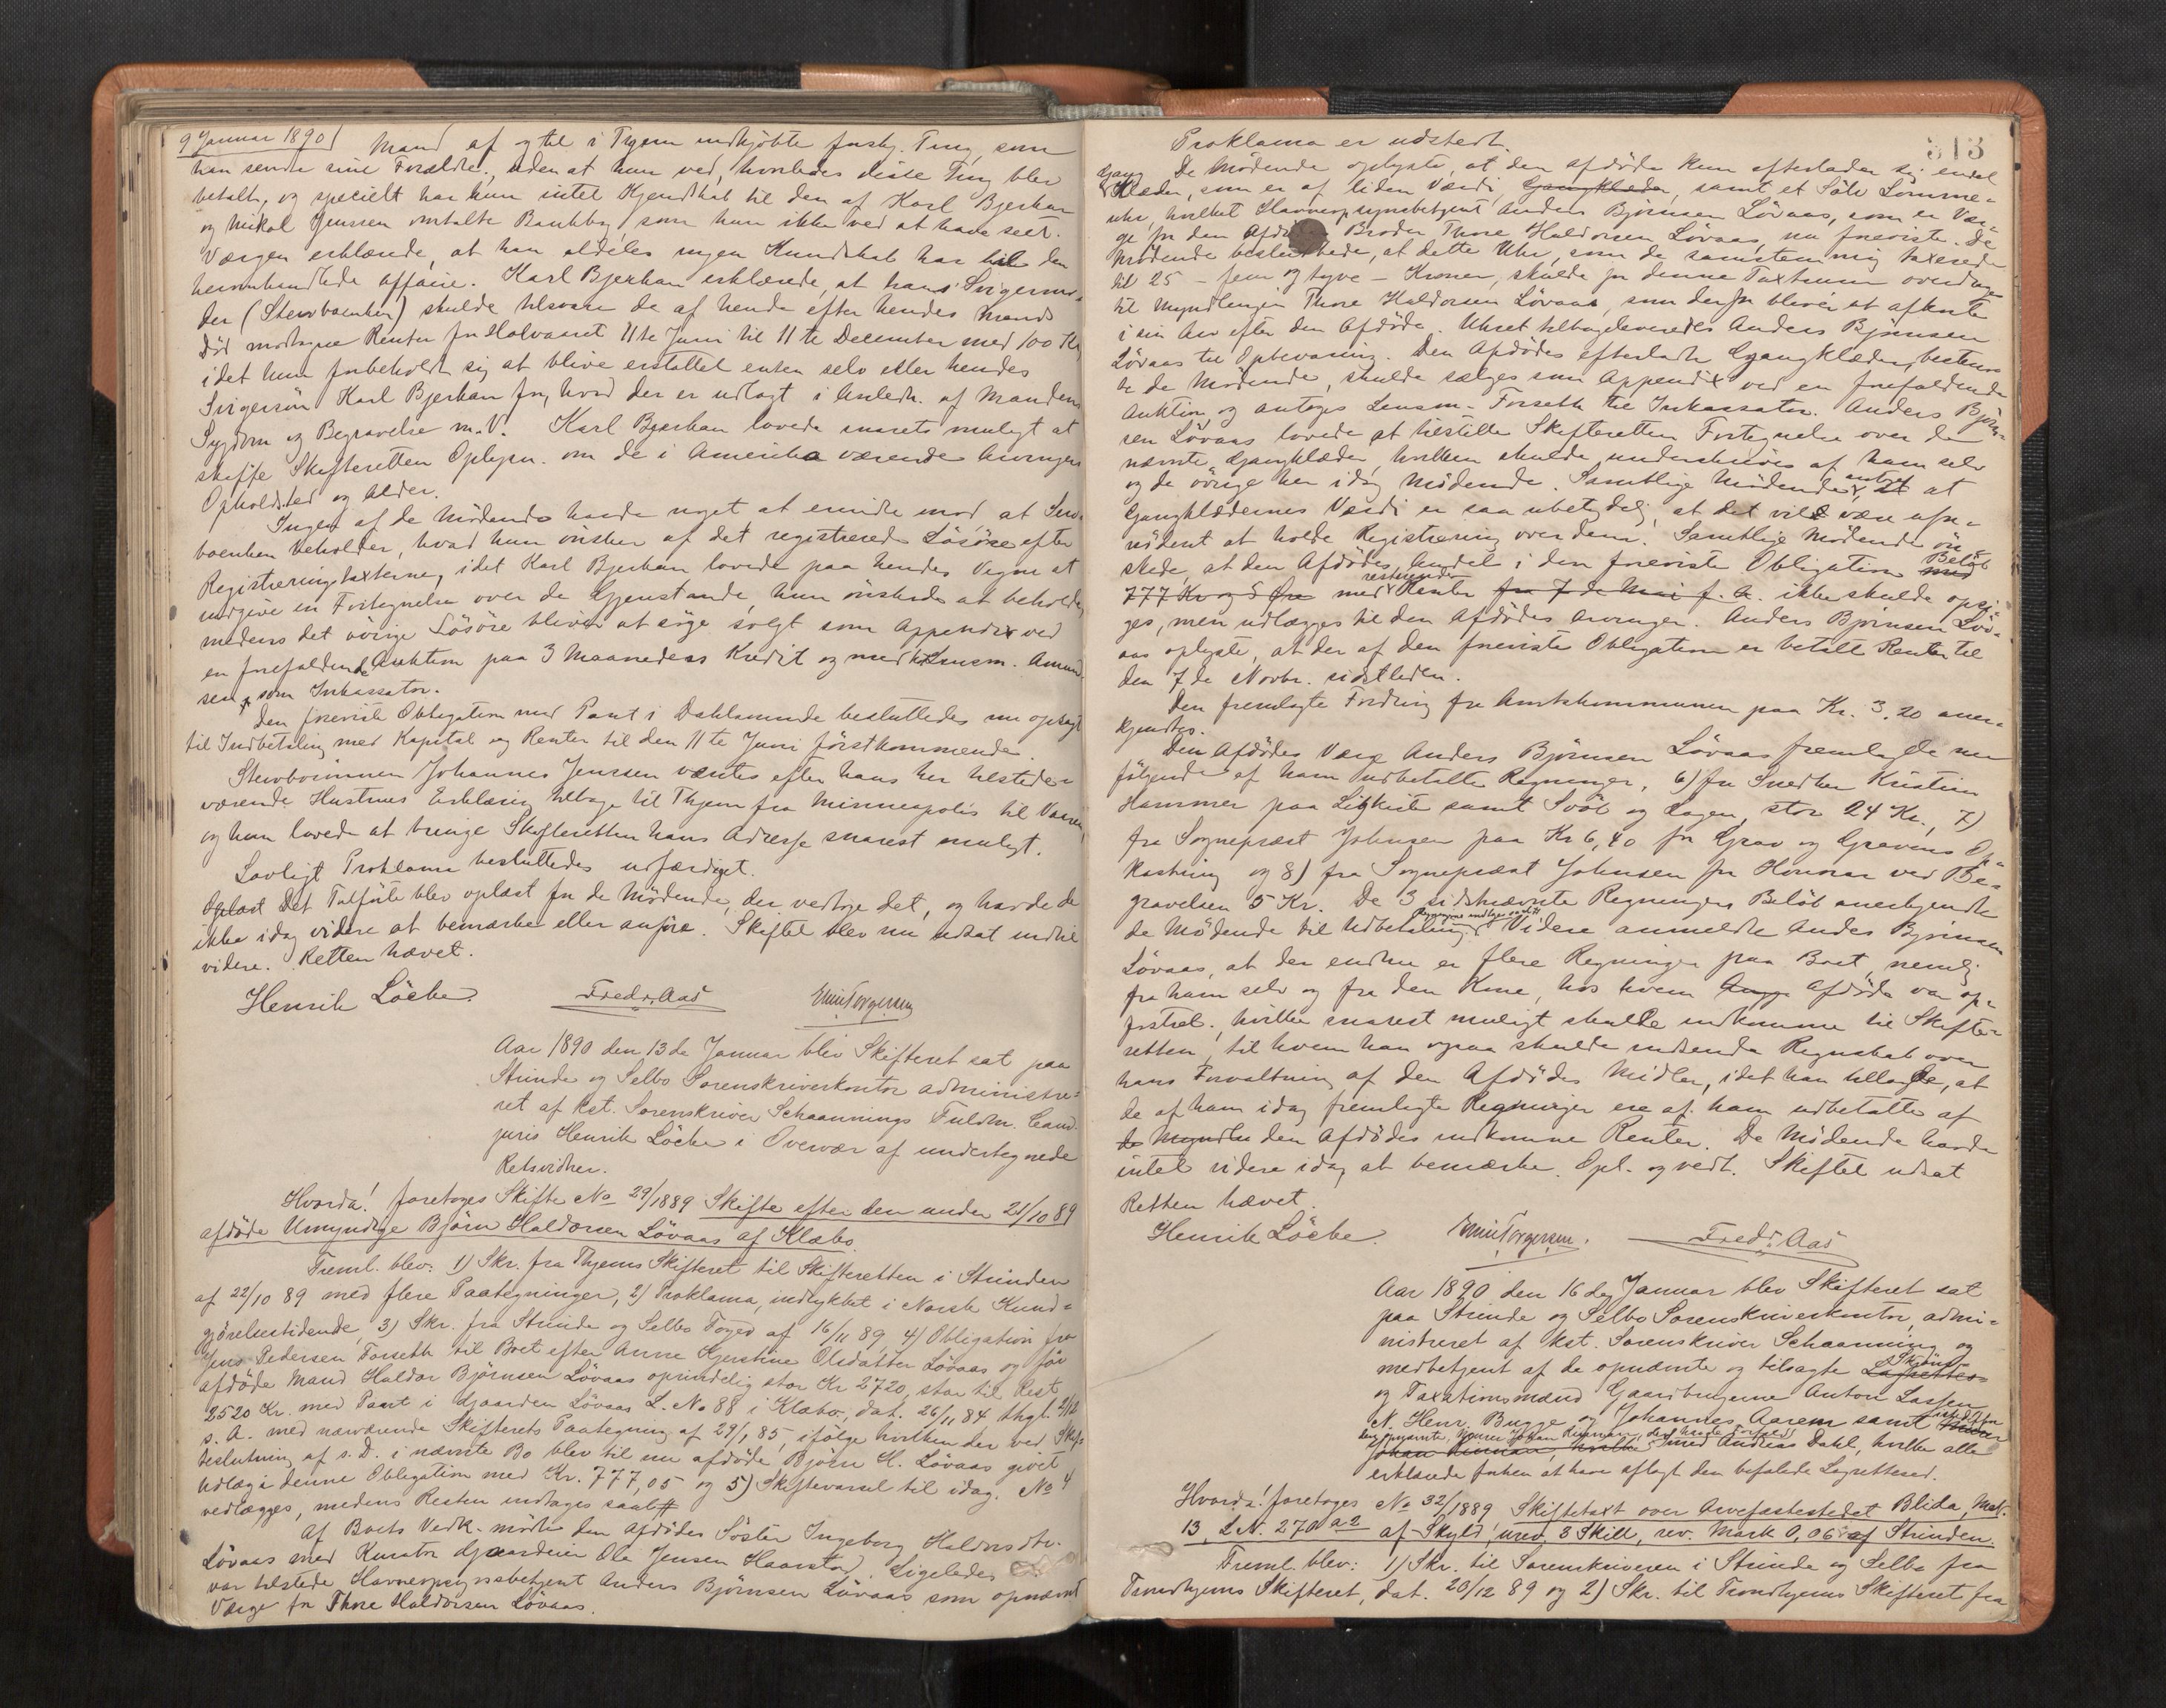 9 Januar 1890 Mand af og til i Thjem indkjöbte forskj. Ting, som
han sendte sine Forældre, uden at hun ved, hvorledes disse Ting blev
betalt, og specielt har hun intet Kjendskab til den af Karl Bjerkan
og Mikal Jenssen omtalte Bankbog, som hun ikke ved at have seet.
Værgen erklærede, at han aldeles ingen Kundskab har til den
heromhandlede affaire. Karl Bjerkan erklærede, at hans Svigermo-
der (Stervboenken) skulde tilsvare de af hende efter hendes Mands
Död modtagne Renter for Halvaaret 11te Juni til 11te December med 100 Kr
idet hun forbeholdt sig at blive erstattet enten selv eller hendes
Svigersön Karl Bjerkan for, hvad der er udlagt i Anledn. af Mandens
Sygdom og Begravelse m.V. Karl Bjerkan lovede snarets muligt at
skaffe Skifteretten Oplysn. om de i Amerika værende Arvingers
Opholdsted og Alder.
Ingen af de Mödende havde noget at erindre mod, at Sterv-
boenken beholder, hvad hun önsker af det registrerede Lösöre efter
Registreringstaxterne, idet Karl Bjerkan lovede paa hendes Vegne at
indgive en Fortegnelse over de Gjenstande, hun önskede at beholde,
medens det övrige Lösöre bliver at söge solgt som Appendix ved
en forefaldende Auktion paa 3 Maaneders Kredit og med Lensm. Amund-
sen som Inkassator.
Den foreviste Obligation med Pant i Dahlamunde besluttedes nu opsagt
til Indbetaling med Kapital og Renter til den 11te Juni förstkommende.
Stervboinmen Johannes Jenssen ventes efter hans her tilstede-
værende Hustrues Erklæring tilbage til Thjem fra Minneapolis til Vaaren,
og hun lovede at bringe Skifteretten hans Adresse snarest muligt.
Lovligt Proklama besluttedes udfærdiget.
Oplæst Det Tilförte blev oplæst for de Mödende, der vedtoge det, og havde de
ikke idag videre at bemærke eller anföre. Skiftet blev nu udsat indtil
videre. Retten hævet.
Henrik Löcke. Fredr. Aas Emil Torgersen
Aar 1890 den 13de Januar blev Skifteret sat paa
Strinde og Selbo Sorenskriverkontor administre-
ret af kst. Sorenskriver Schaannings Fuldm. Cand.
juris Henrik Löcke i Overvær af undertegnede
Retsvidner.
Hvorda! foretoges Skifte No 29/1889 Skifte efter den under 21/10 89
afdöde Umyndige Björn Haldorsen Lövaas af Klæbo.
Freml. blev: 1) Skr. fra Thjems Skifteret til Skifteretten i Strinden
af 22/10 89 med flere Paategninger, 2) Proklama, indrykket i Norsk Kund-
gjörelsestidende, 3) Skr. fra Strinde og Selbo Foged af 16/11 89, 4) Obligation fra
Jens Pedersen Forseth til Boet efter Anne Kjerstine Olsdatter Lövaas og för
afdöde Mand Haldor Björnsen Lövaas oprindelig stor Kr 2720, stor til Rest
2520 Kr. med Pant i Gaarden Lövaas L. No 88 i Klæbo, dat. 26/11 84 thgl. 2/12
s. A. med nærværende Skifterets Paategning af 29/1 85, ifölge hvilken der ved Skif-
tesluttning af s. D. i nævnte Bo blev til nu afdöde Björn H. Lövaas givet
Udlæg i denne Obligation med Kr. 777,05 og 5) Skiftevarsel til idag. No 4
vedlægges, medens Resten indtages saal.
Af Boets Vedk. mödte den Afdödes Söster Ingeborg Haldorsdtr.
Lövaas med Kurator Gaardeier Ole Jensen Haarstad. Ligeledes
var tilstede Havneopsynsbetjent Anders Björnsen Lövaas som opnævnt
Værge for Thore Haldorsen Lövaas.
313
Proklama er udstedt.
De Mödende oplyste, at den afdöde kun efterlader sig endel
Gang Klæder, som er af liden Værdi, Gangklæder, samt et Sölv Lomme-
uhr, hvilket Havneopsynsbetjent Anders Björnsen Lövaas, som er Vær-
ge for den Broder Thore Haldorsen Lövaas, nu foreviste. De
Mödende besluttede, at dette Uhr, som de samstemmig taxerede
til 25 - fem og tyve - Kroner, skulde for denne Taxtsum overdrages
til Myndlingen Thore Haldorsen Lövaas, som derfor bliver at afkorte
i sin Arv efter den Afdöde. Uhret tilbageleveredes Anders Björnsen
Lövaas til Opbevaring. Den Afdödes efterladte Gangklæder, bestem-
te de Mödende, skulde sælges som Appendix ved en forefaldende
Auktion og antoges Lensm. Forseth til Inkassator. Anders Björn-
sen Lövaas lovede at tilstille Skifteretten Fortegnelse over de
nævnte Gangklæder, hvilken skulde underskrives af ham selv
og de övrige her idag Mödende. Samtlige Mödende antog at at
Gangklædernes Værdi er saa ubetydelig, at det vilde være ufor-
nödent at holde Registrering over dem. Samtlige Mödende ön-
skede, at den Afdödes Andel i den foreviste Obligation Beløb med
777 Kr og 5 Øre med resterende Renter fra 7de Mai f. A. ikke skulde opsi-
ges, men udlægges til den Afdödes Arvinger. Anders Björnsen Löv-
aas oplyste, at der af den foreviste Obligation er betalt Renter til
den 7de Novbr. sidstleden.
Den fremlagte Fordring fra Amtskommunen paa Kr. 3,20 aner-
kjendtes.
Den Afdödes Værge Anders Björnsen Lövaas fremlagde nu
fölgende af ham udbetalte Regninger, 6) fra Snedker Kristian
Hammer paa Ligkiste samt Svöb og Lagen, stor 24 Kr., 7)
fra Sognepræst Johnsen paa Kr 6,40 for Grav og Gravens Op-
kastning og 8) fra Sognepræst Johnsen for Honorar ved Be-
gravelsen 5 Kr. De 3 sidstnævnte Regningers Belöb anerkjendte
de Mödende til Udbetaling. Regningerne indtages saal. Videre anmeldte Anders Björnsen
Lövaas, at der endnu er flere Regninger paa Boet, nemlig
fra ham selv og fra den Kone, hos hvem Afdöde var op-
fostret, hvilke snarest muligt skulde indkomme til Skifte-
retten, til hvem han ogsaa skulde indsende Regnskab over
hans Forvaltning af den Afdödes Midler, idet han tillagde, at
de af ham idag fremlagte Regninger ere af ham udbetalte af
de Myndlis den Afdödes indkomne Renter. De Mödende havde
intet videre idag at bemærke. Opl. og vedt. Skiftet udsat
Retten hævet.
Henrik Löcke. Emil Torgersen. Fredr. Aas
Aar 1890 den 16de Januar blev Skifteret sat
paa Strinde og Selbo Sorenskriverkontor, admi-
nistreret af kst. Sorenskriver Schaanning og
medbetjent af de opnævnte og tilsagte Skjöns- Lagrettes-
og Taxationsmænd Gaardbrugerne Anton Lassen
N. Henr. Bugge og Johannes Aarem samt istedetfor
den opnævnte, Johan Rinnan, der havde Forfald
Johan Rinnan, hvilke med Andreas Dahl, hvilke alle
erklærede forhen at have aflagt den befalede Lagretteed.
Hvorda! foretoges No 32/1889 Skiftetaxt over Arvefæstestedet Blida, Mat.
13, L.N. 270 a2 af Skyld, urev. 3 Skill, rev. Mark 0,06 af Strinden.
Freml. blev: 1) Skr. til Sorenskriveren i Strinde og Selbo fra
Trondhjems Skifteret, dat. 20/12 89 og 2) Skr. til Trondhjems Skifteret fra